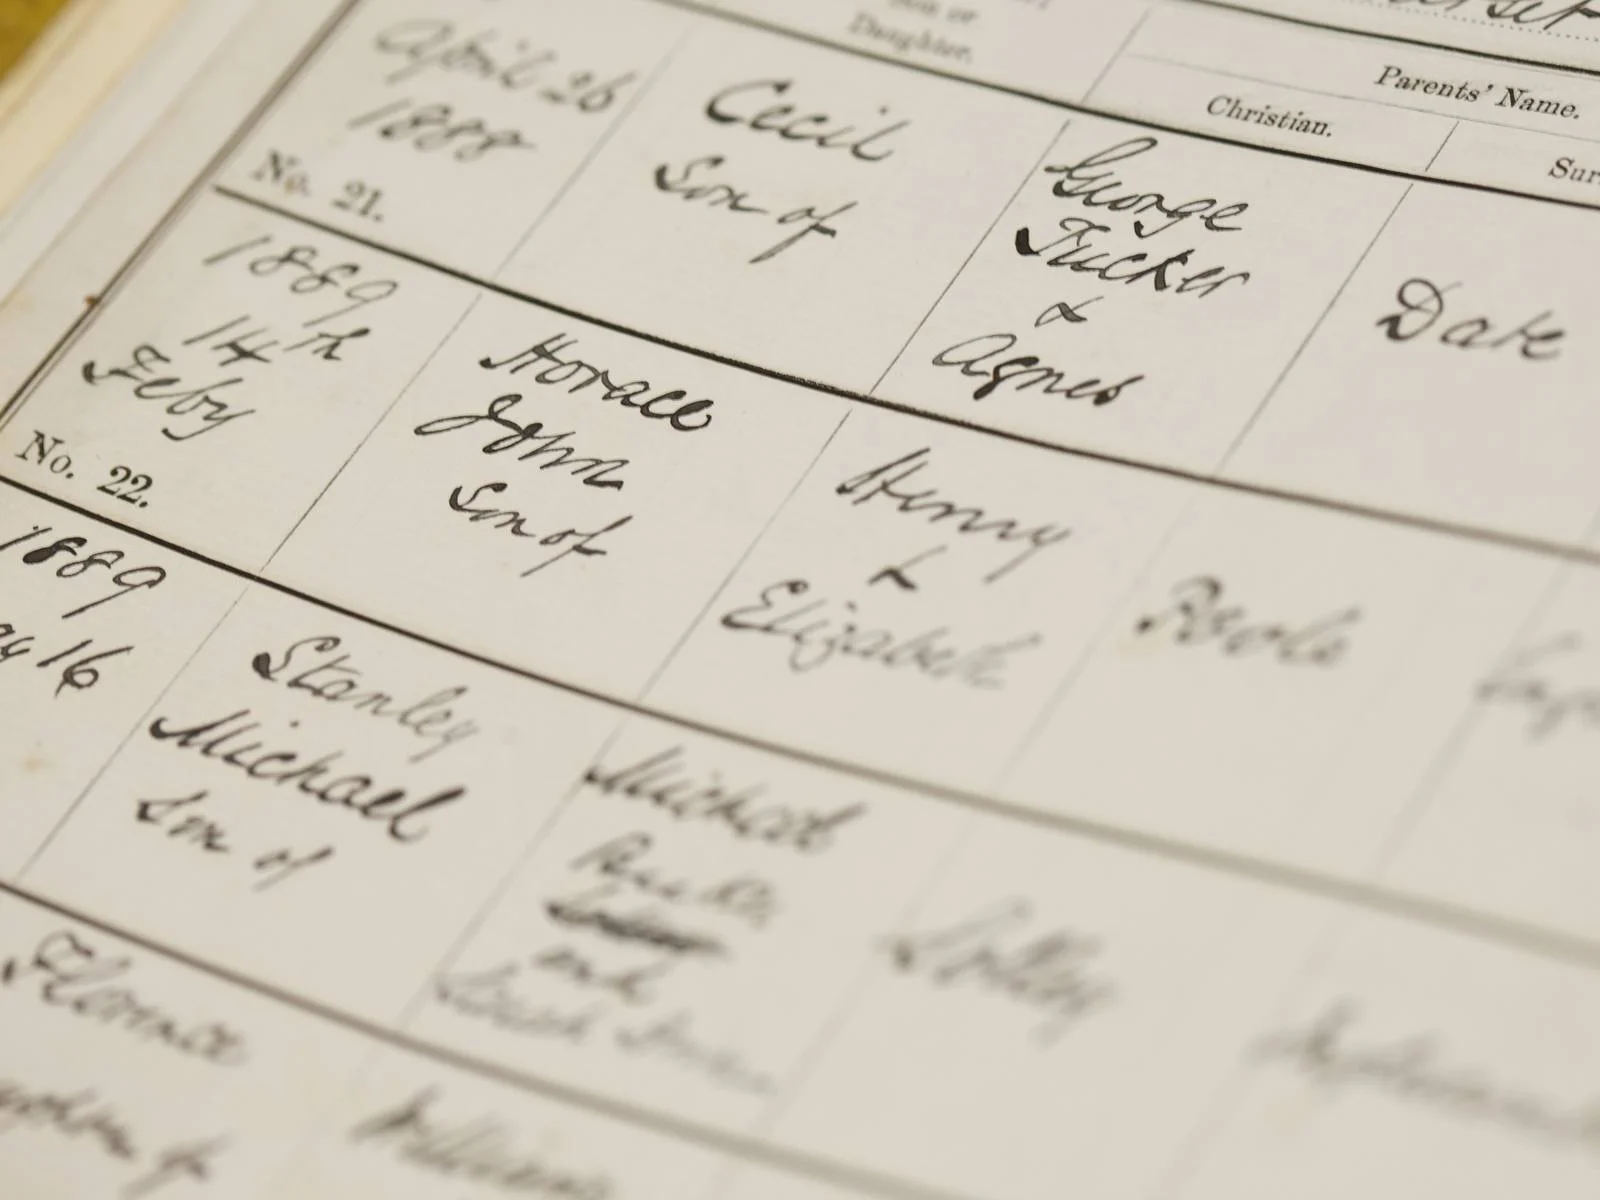 Son or
Daughter.
Parents' Name.
Christian.
April 26
1888
No. 21.
Cecil
Son of
George
Tucker
&
Agnes
Date
1889
14th
Feby
No. 22.
Horace
John
Son of
Henry
&
Elizabeth
Poole
1889
16
Stanley
Michael
Son of
Michael
and
Florence
William